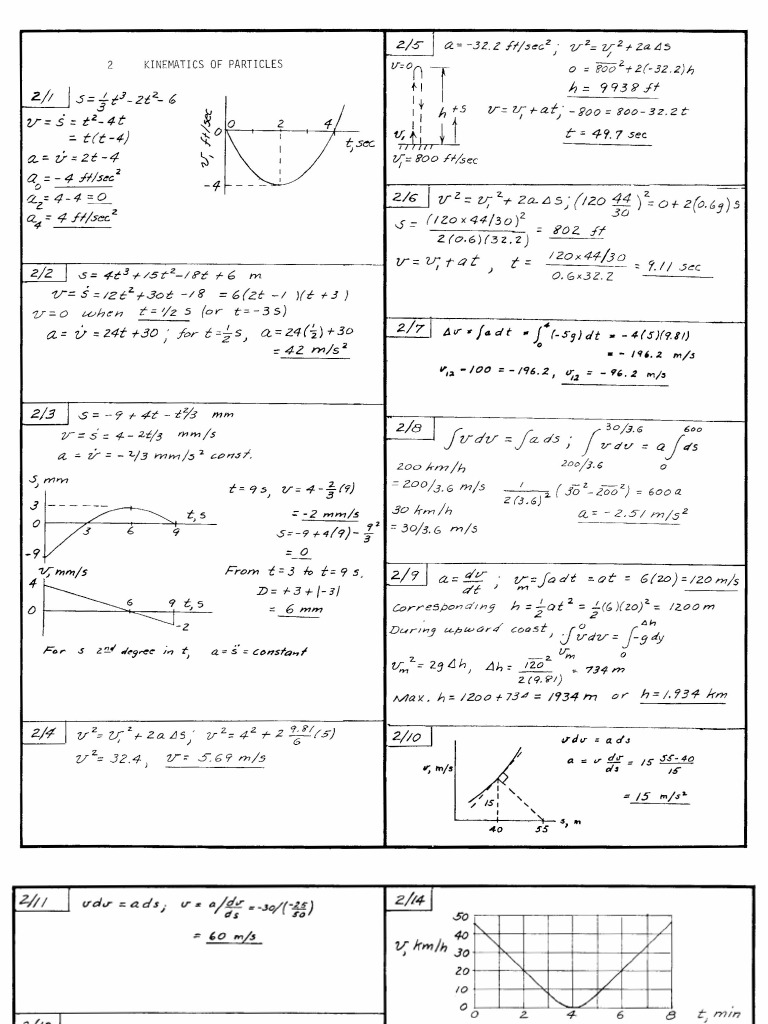 2 KINEMATICS OF PARTICLES
2/1 s = 1/3 t³ - 2t² - 6
v = ṡ = t² - 4t
= t(t-4)
a = v̇ = 2t - 4
a₀ = -4 ft/sec²
a₂ = 4-4 = 0
a₄ = 4 ft/sec²
v, ft/sec
0
0 2 4
t, sec
-4
2/2 s = 4t³ + 15t² - 18t + 6 m
v = ṡ = 12t² + 30t - 18 = 6(2t - 1)(t + 3)
v = 0 when t = 1/2 s (or t = -3 s)
a = v̇ = 24t + 30 ; for t = 1/2 s, a = 24(1/2) + 30
= 42 m/s²
2/3 s = -9 + 4t - t²/3 mm
v = ṡ = 4 - 2t/3 mm/s
a = v̇ = -2/3 mm/s² const.
s, mm
3
0
-9
3 6 9
t, s
v, mm/s
4
0
6 9 t, s
-2
t = 9 s, v = 4 - 2/3 (9)
= -2 mm/s
s = -9 + 4(9) - 9²/3
= 0
From t = 3 to t = 9 s,
D = +3 + |-3|
= 6 mm
For s 2nd degree in t, a = s̈ = constant
2/4 v² = v₁² + 2aΔs; v² = 4² + 2 9.81/6 (5)
v² = 32.4, v = 5.69 m/s
2/5 a = -32.2 ft/sec²; v² = v₁² + 2aΔs
v = 0
0 = 800² + 2(-32.2)h
h = 9938 ft
h +s
v = v₁ + at; -800 = 800 - 32.2t
t = 49.7 sec
v₁
v₁ = 800 ft/sec
2/6 v² = v₁² + 2aΔs; (120 44/30)² = 0 + 2(0.6g)s
s = (120×44/30)² / 2(0.6)(32.2) = 802 ft
v = v₁ + at, t = 120×44/30 / 0.6×32.2 = 9.11 sec
2/7 Δv = ∫a dt = ∫₀⁴(-5g)dt = -4(5)(9.81)
= -196.2 m/s
v₁₂ - 100 = -196.2, v₁₂ = -96.2 m/s
2/8 ∫v dv = ∫a ds ; ∫ 200/3.6 30/3.6 v dv = a ∫ 0 600 ds
200 km/h
= 200/3.6 m/s 1/2(3.6)² (30² - 200²) = 600a
30 km/h a = -2.51 m/s²
= 30/3.6 m/s
2/9 a = dv/dt ; vₘ = ∫a dt = at = 6(20) = 120 m/s
Corresponding h = 1/2 at² = 1/2 (6)(20)² = 1200 m
During upward coast, ∫ vₘ 0 v dv = ∫ 0 Δh -g dy
vₘ² = 2gΔh, Δh = 120²/2(9.81) = 734 m
Max. h = 1200 + 734 = 1934 m or h = 1.934 km
2/10 v dv = a ds
v, m/s
a = v dv/ds = 15 55-40/15
= 15 m/s²
15
40 55 s, m
2/11 v dv = a ds; v = a/dv/ds = -30/(-25/50)
= 60 m/s
2/14
v, km/h
50
40
30
20
10
0
0 2 4 6 8 t, min